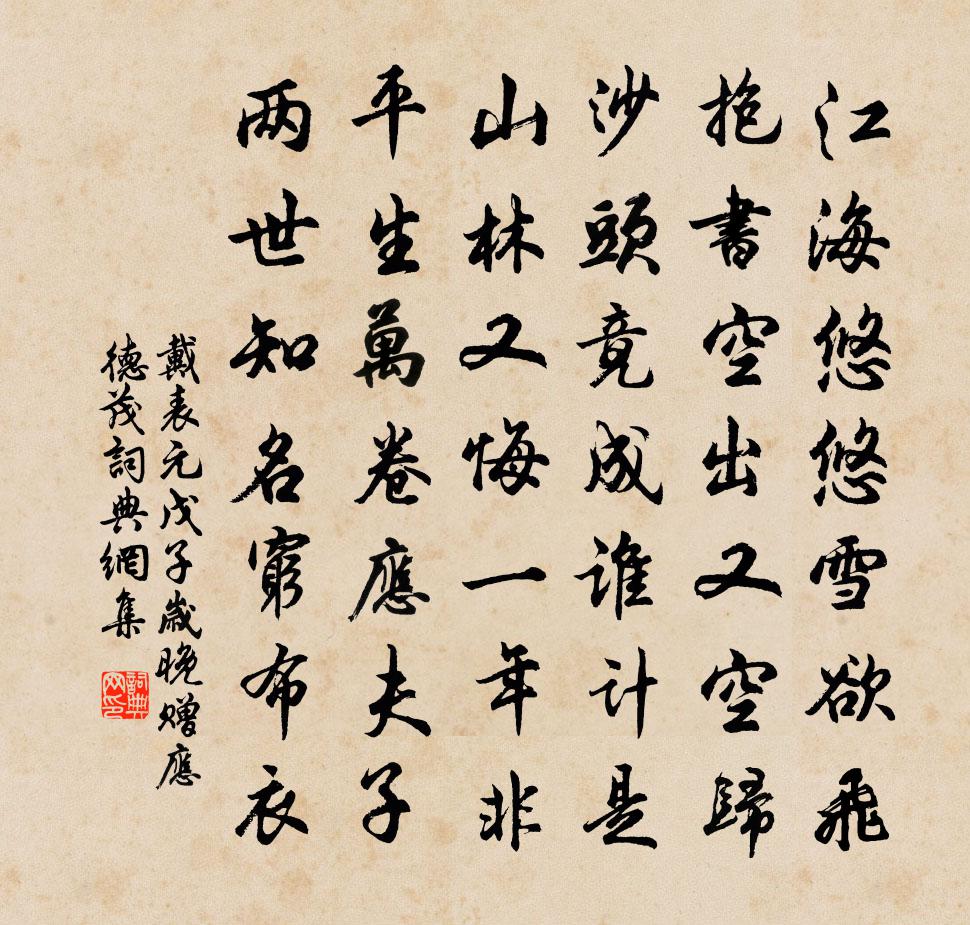 江海悠悠雪欲飛
抱書空出又空歸
沙頭竟成誰計是
山林又悔一年非
平生萬卷應夫子
兩世知名窮布衣
戴表元戊子歲晚贈應
德茂詞典網集
詞典網印